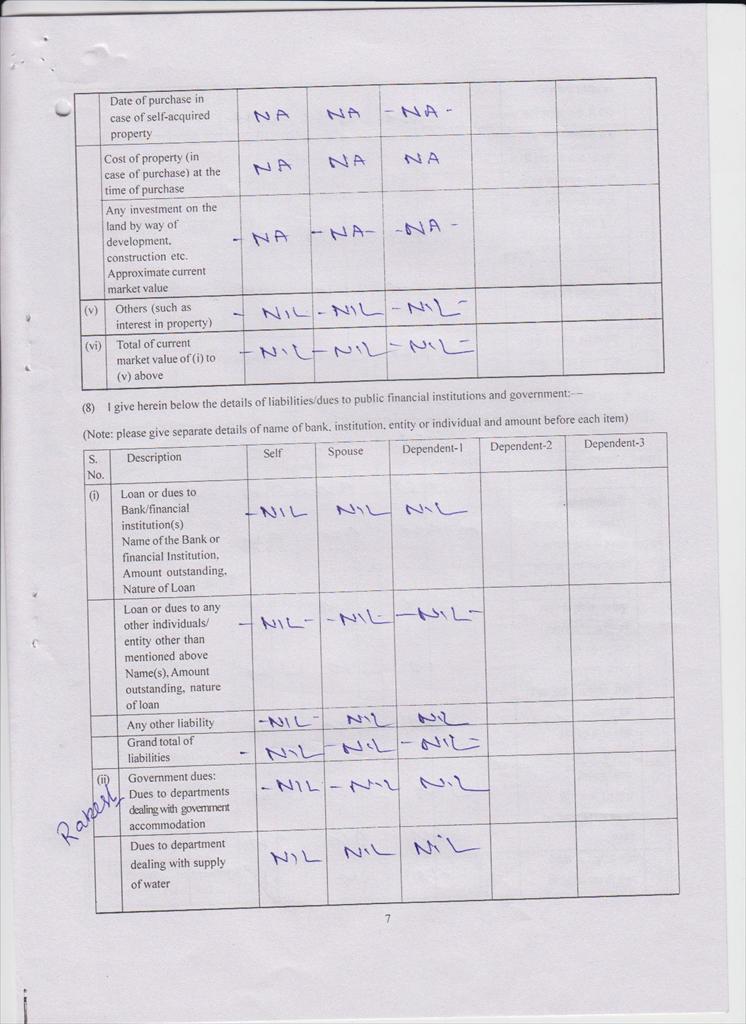 Date of purchase in
case of self-acquired
property
NA NA - NA -
Cost of property (in
case of purchase) at the
time of purchase
NA NA NA
Any investment on the
land by way of
development,
construction etc.
Approximate current
market value
- NA - NA - - NA -
(v) Others (such as
interest in property)
- NIL - NIL - NIL -
(vi) Total of current
market value of (i) to
(v) above
- NIL - NIL - NIL -
(8) I give herein below the details of liabilities/dues to public financial institutions and government:—
(Note: please give separate details of name of bank, institution, entity or individual and amount before each item)
S. No. Description Self Spouse Dependent-1 Dependent-2 Dependent-3
(i) Loan or dues to
Bank/financial
institution(s)
Name of the Bank or
financial Institution,
Amount outstanding,
Nature of Loan
- NIL NIL NIL
Loan or dues to any
other individuals/
entity other than
mentioned above
Name(s), Amount
outstanding, nature
of loan
- NIL - - NIL - - NIL -
Any other liability - NIL - NIL NIL
Grand total of
liabilities
- NIL - NIL - NIL -
(ii) Government dues:
Dues to departments
dealing with government
accommodation
- NIL - NIL NIL
Rakesh
Dues to department
dealing with supply
of water
NIL NIL NIL
7